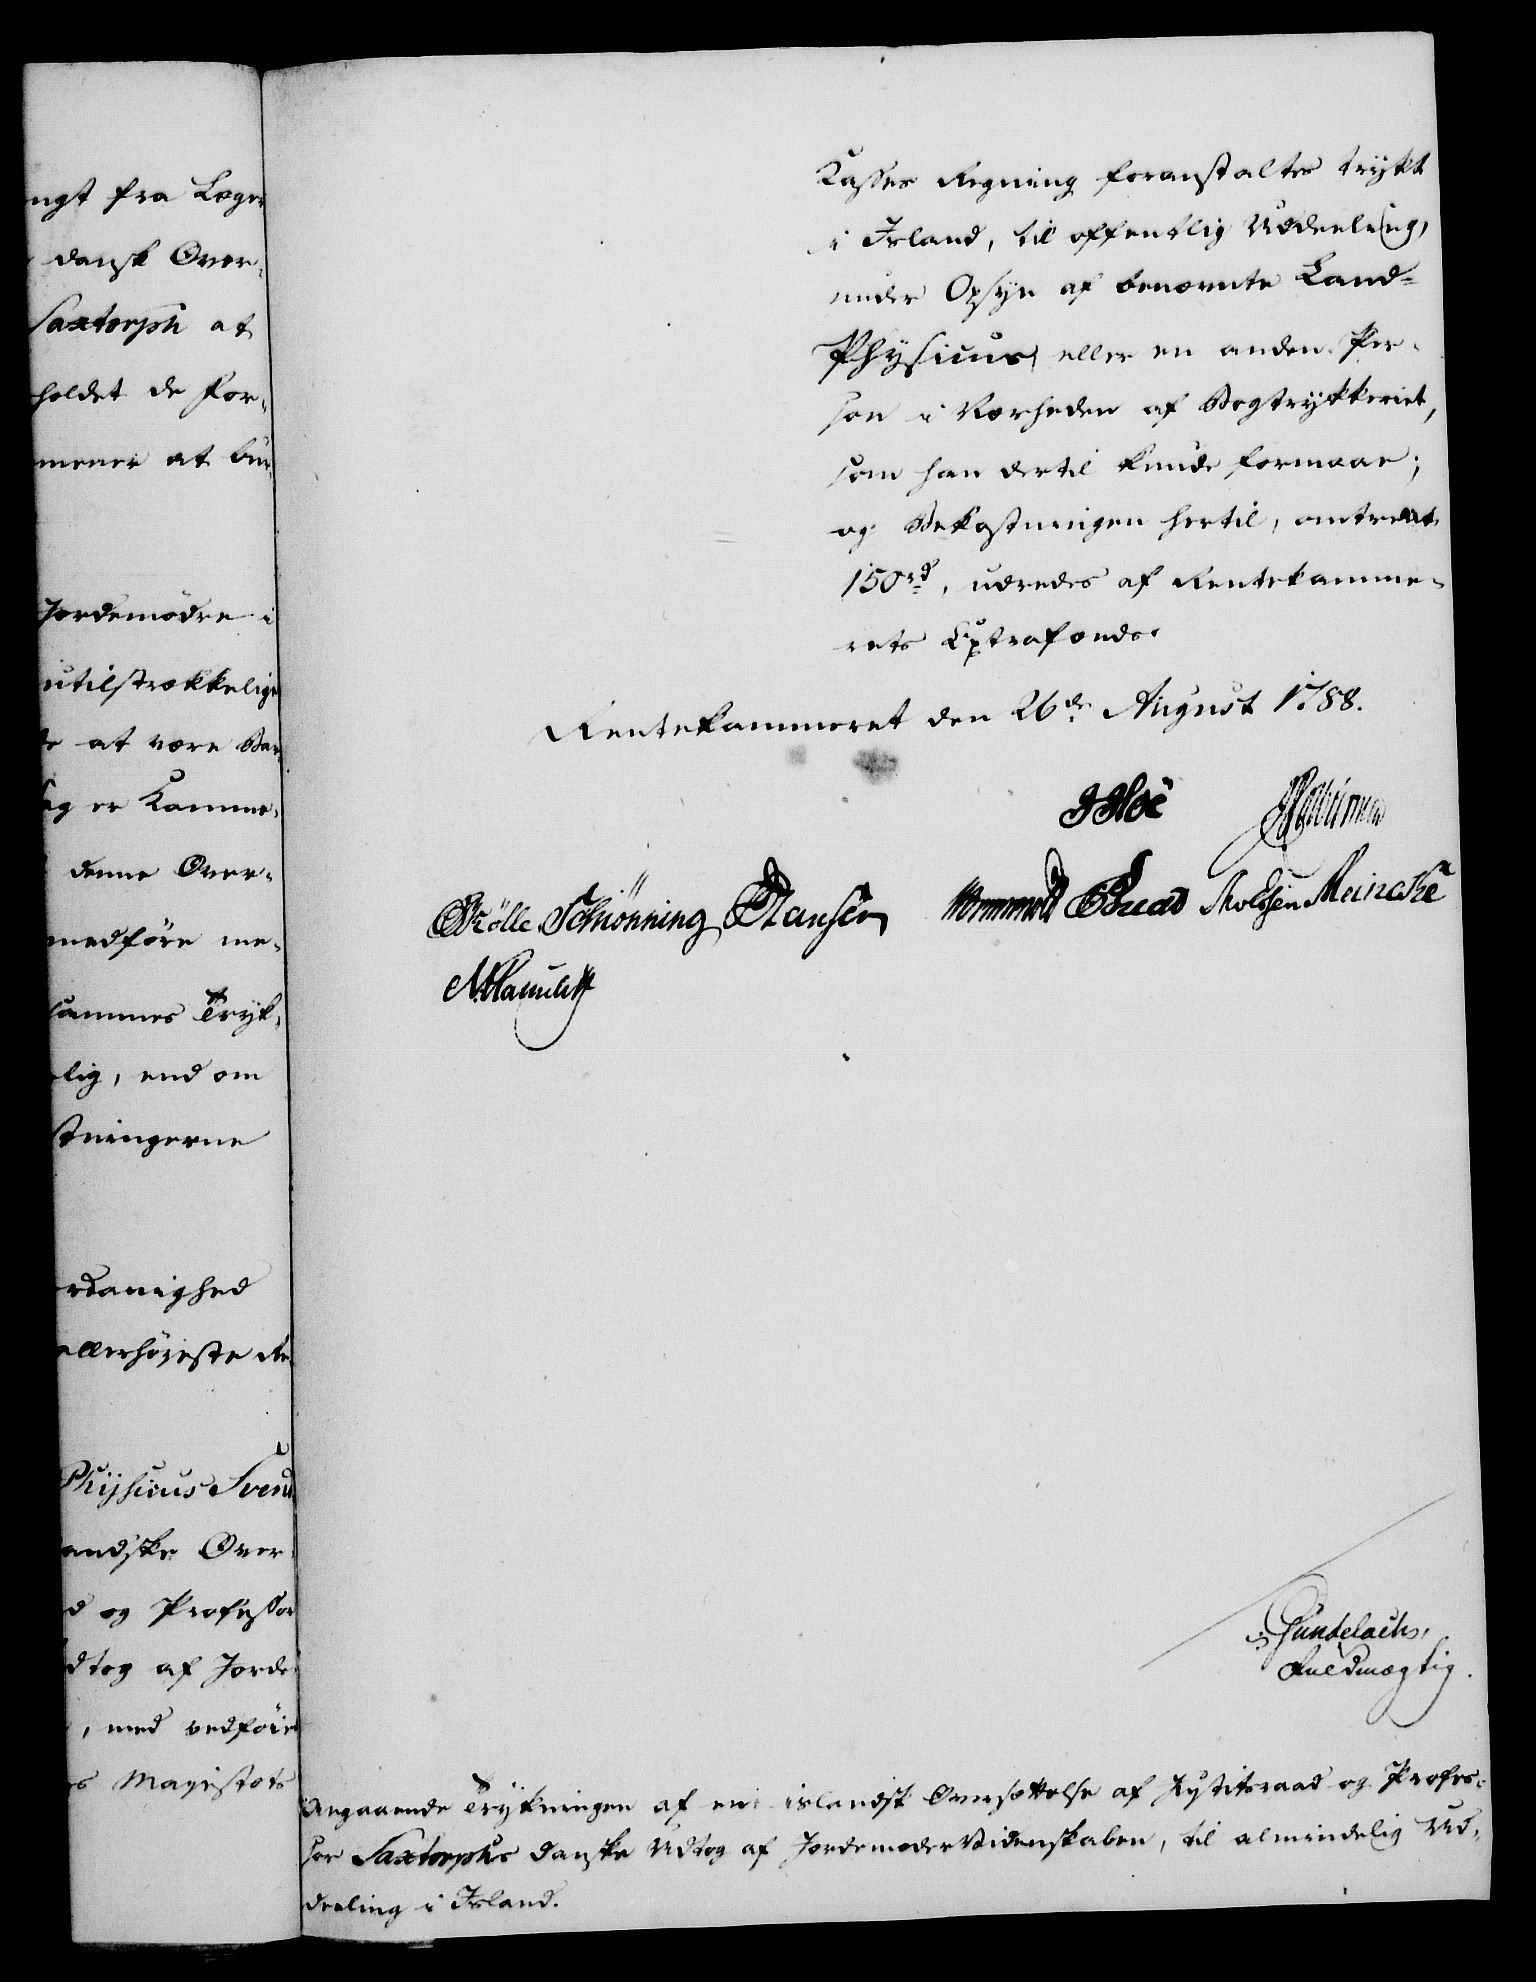 ngt fra Læge
dansk Over-
Saxtorph at
holdet de for-
mener at bur
Jordemødre i
utilstrækkelige
at være Bar
er Kamme-
denne Over-
medføre me-
sammes Tryk-
lig, end om
stningerne
rdanighed
allerhøieste Re
Physicus Svend
andske Over-
d og Professor
dtog af Jorde-
, med vedføie
Majestæts
Kasses Regning foranstaltes trykt
i Island, til offentlig Uddeeling,
under Opsyn af benævnte Land-
Physicus, eller en anden Per-
son i Nærheden af Bogtrykkeriet,
som han dertil kunde formaae;
og Bekostningen hertil, omtrent
150 rd, udredes af Rentekamme-
rets Extrafonds.
Rentekammeret den 26de August 1788.
JHoë
Rølle Schiønning Hansen Wormskiold Knudd Moldsen Meincke
Gundelach,
Fuldmægtig.
Angaaende Trykningen af en islandsk Oversættelse af Justitsraad og Profes-
sor Saxtorphs danske Udtog af JordemoderVidenskaben, til almindelig Ud-
deeling i Island.